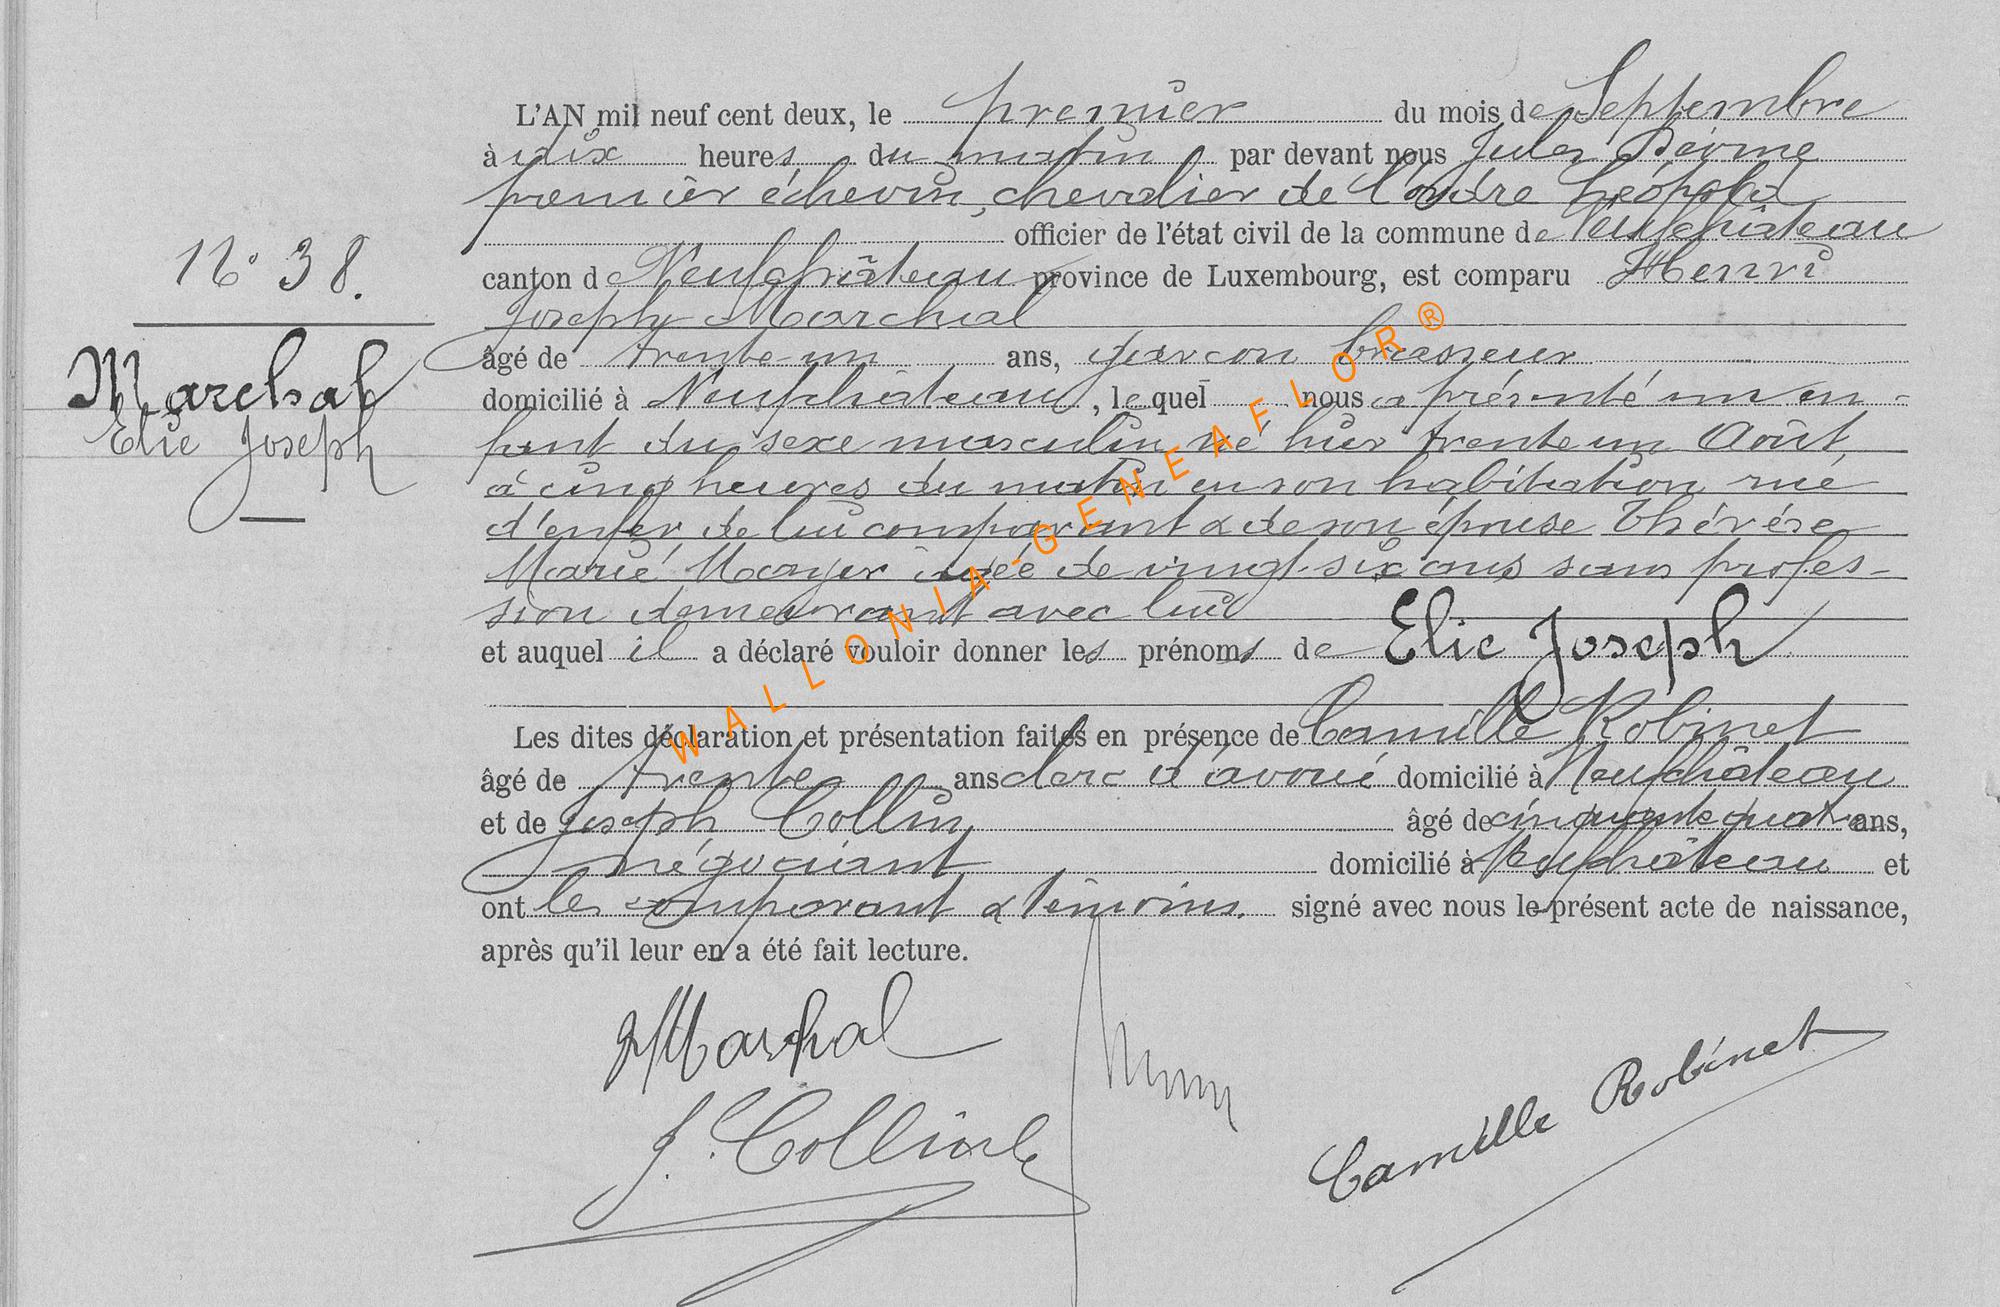 L'AN mil neuf cent deux, le premier du mois de Septembre
à dix heures du matin par devant nous Jules
premier échevin, chevalier de l'ordre Léopold
officier de l'état civil de la commune de Neufchâteau
canton de Neufchâteau province de Luxembourg, est comparu Henri
Joseph Marchal
âgé de trente-un ans, garçon brasseur
domicilié à Neufchâteau, lequel nous a présenté un en-
fant du sexe masculin né hier trente un Août,
à cinq heures du matin en son habitation rue
d'enfer, de lui comparant & de son épouse Thérèse
Marie Mayer âgée de vingt-six ans sans profes-
sion demeurant avec lui
et auquel il a déclaré vouloir donner les prénoms de Elie Joseph
Les dites déclaration et présentation faites en présence de Camille Robinet
âgé de trente ans clerc d'avoué domicilié à Neufchâteau
et de Joseph Collin âgé de cinquante quatre ans,
négociant domicilié à Neufchâteau et
ont les comparant & témoins. signé avec nous le présent acte de naissance,
après qu'il leur en a été fait lecture.
N° 38.
Marchal
Elie Joseph
HMarchal
J. Collin
Camille Robinet
WALLONIA-GENEAFLOR®